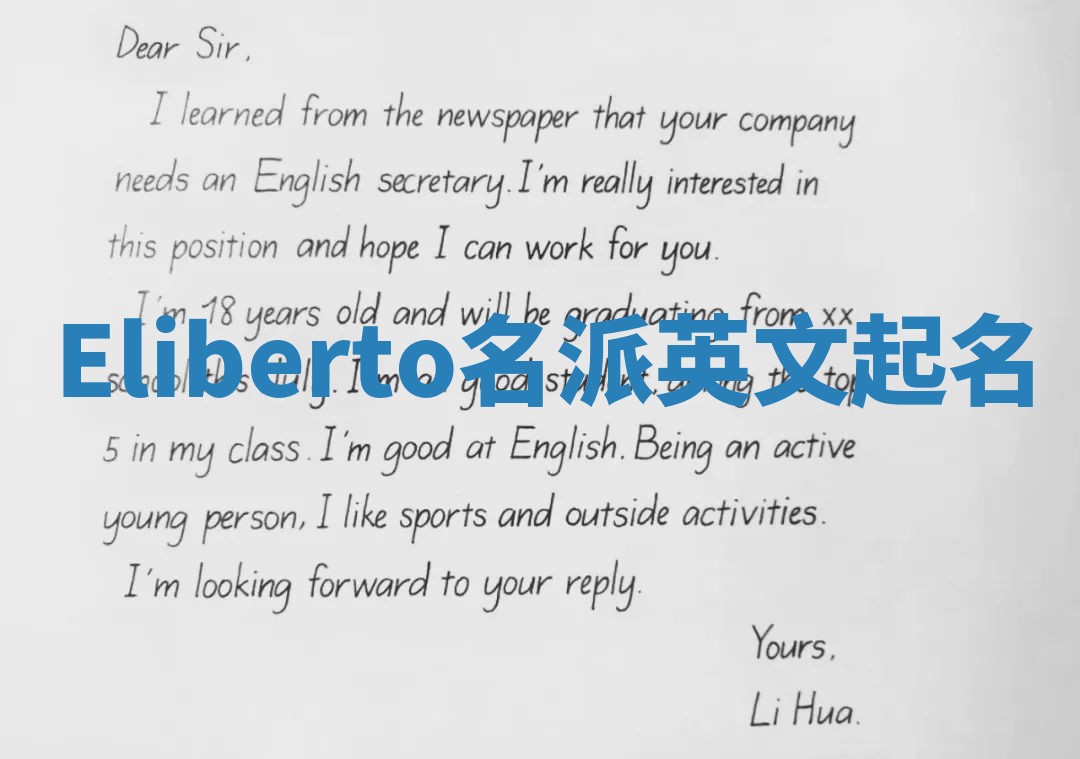 Dear Sir,
I learned from the newspaper that your company
needs an English secretary. I'm really interested in
this position and hope I can work for you.
I'm 18 years old and will be graduating from xx
Eliberto名派英文起名
school this July. I'm a good student, among the top
5 in my class. I'm good at English. Being an active
young person, I like sports and outside activities.
I'm looking forward to your reply.
Yours,
Li Hua.